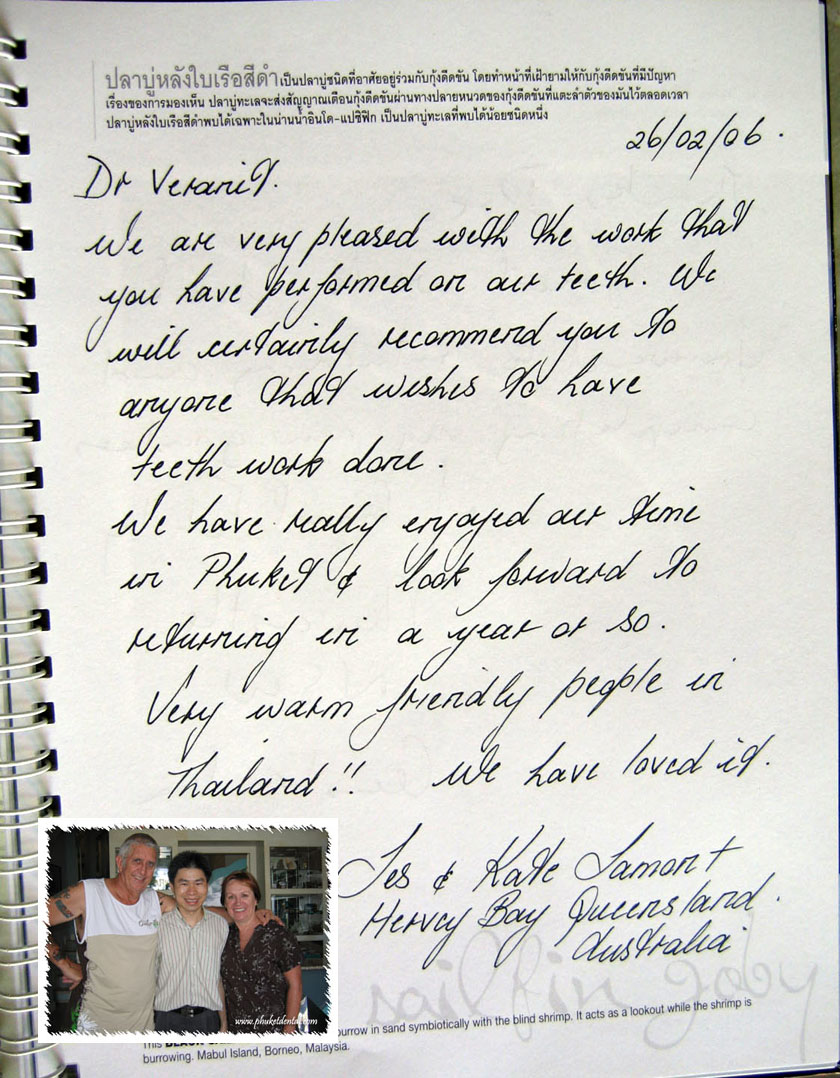 ปลาบู่หลังใบเรือสีดำเป็นปลาบู่ชนิดที่อาศัยอยู่ร่วมกับกุ้งดีดขัน โดยทำหน้าที่เฝ้ายามให้กับกุ้งดีดขันที่มีปัญหา
เรื่องของการมองเห็น ปลาบู่ทะเลจะส่งสัญญาณเตือนกุ้งดีดขันผ่านทางปลายหนวดของกุ้งดีดขันที่แตะลำตัวของมันไว้ตลอดเวลา
ปลาบู่หลังใบเรือสีดำพบได้เฉพาะในน่านน้ำอินโด-แปซิฟิก เป็นปลาบู่ทะเลที่พบได้น้อยชนิดหนึ่ง
26/02/06.
Dr Veranit.
We are very pleased with the work that
you have performed on our teeth. We
will certainly recommend you to
anyone that wishes to have
teeth work done.
We have really enjoyed our time
in Phuket & look forward to
returning in a year or so.
Very warm friendly people in
Thailand!! We have loved it.
& Kate Lamont
Hervey Bay Queensland.
Australia
www.phuketdental.com
This burrow in sand symbiotically with the blind shrimp. It acts as a lookout while the shrimp is
burrowing. Mabul Island, Borneo, Malaysia.